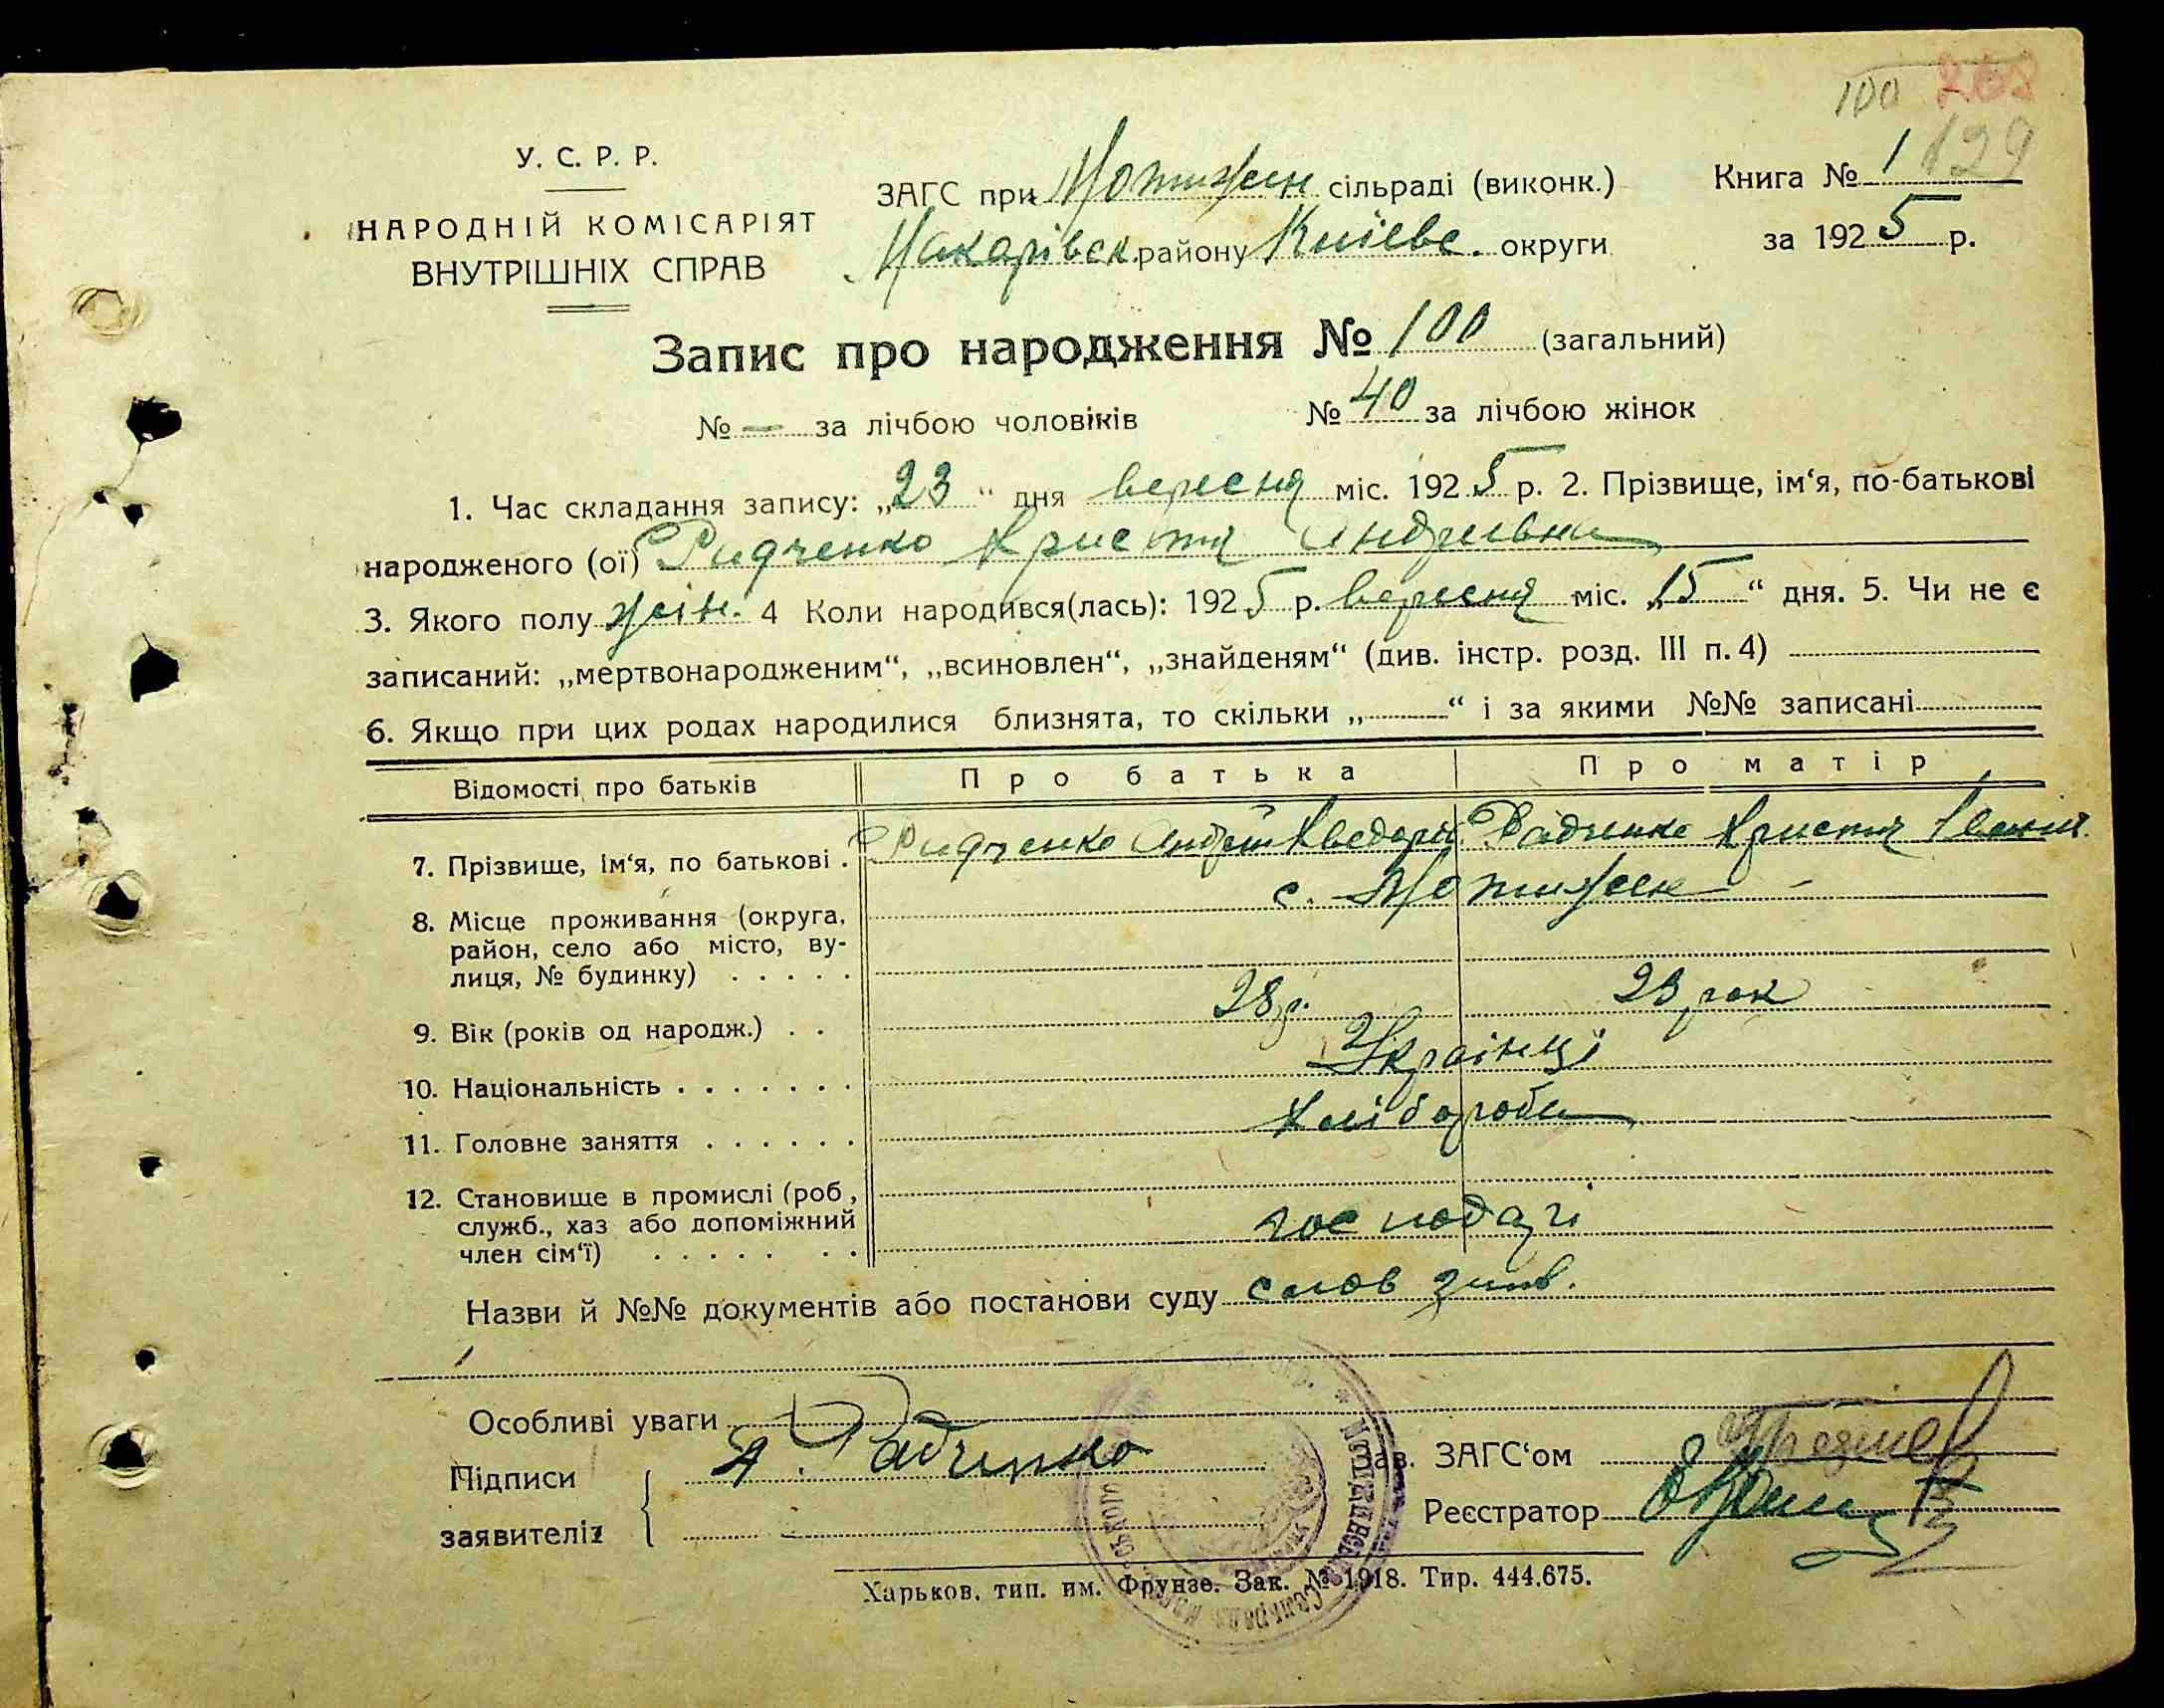 100 268
129
У. С. Р. Р.
НАРОДНІЙ КОМІСАРІЯТ
ВНУТРІШНІХ СПРАВ
ЗАГС при Мотижин сільраді (виконк.)
Макарівск. району Київс. округи
Книга № 1
за 1925 р.
Запис про народження № 100 (загальний)
№ — за лічбою чоловіків № 40 за лічбою жінок
1. Час складання запису: „23“ дня вересня міс. 1925 р. 2. Прізвище, ім‘я, по-батькові
народженого (ої) Радченко Христя Андріівна
3. Якого полу жін. 4 Коли народився(лась): 1925 р. вересня міс. „15“ дня. 5. Чи не є
записаний: „мертвонародженим“, „всиновлен“, „знайденям“ (див. інстр. розд. III п. 4)
6. Якщо при цих родах народилися близнята, то скільки „—“ і за якими №№ записані
Відомості про батьків Про батька Про матір
7. Прізвище, ім‘я, по батькові . Радченко Андрій Радченко Христя
8. Місце проживання (округа, с. Мотижин
район, село або місто, ву-
лиця, № будинку) . . . . .
9. Вік (років од народж.) . . 28 р. 23 рок
10. Національність . . . . . . . Українці
11. Головне заняття . . . . . . Хлібороби
12. Становище в промислі (роб., служб., хаз або допоміжний
член сім‘ї) . . . . . . . господарі
Назви й №№ документів або постанови суду слов
Особливі уваги
Підписи
заявителів
А. Радченко
Зав. ЗАГС‘ом
Реєстратор
Харьков, тип. им. Фрунзе. Зак. № 1918. Тир. 444.675.